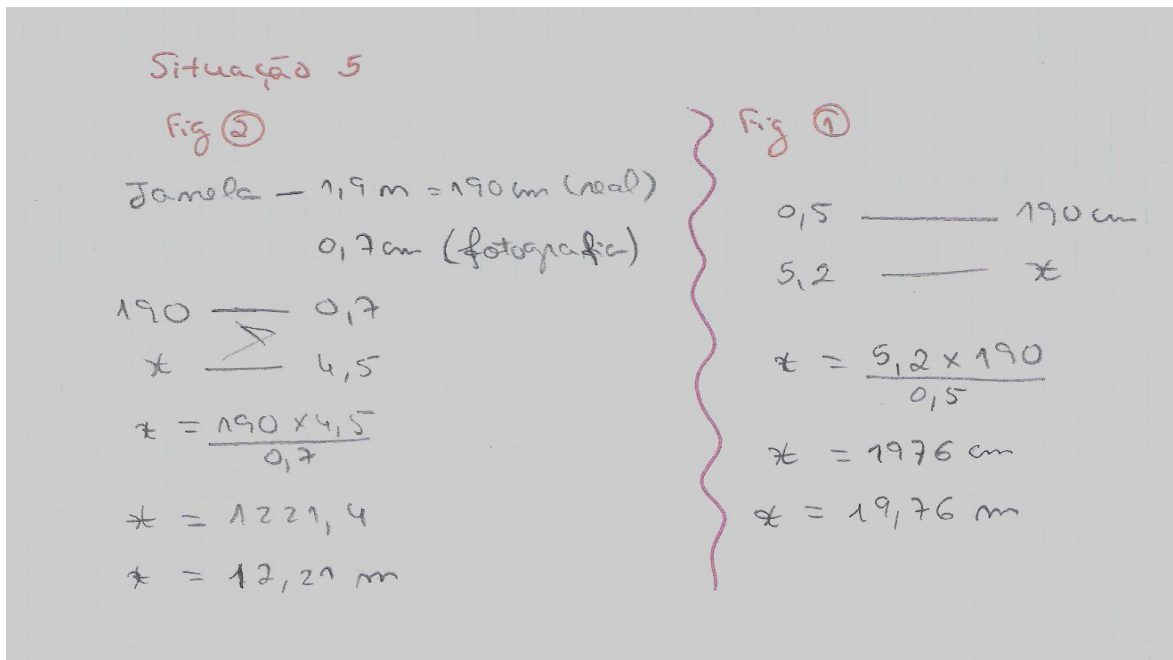 Situação 5
Fig ②
Janela – 1,9 m = 190 cm (real)
0,7 cm (fotografia)
190 — 0,7
x — 4,5
x = 190 x 4,5 / 0,7
x = 1221,4
x = 12,21 m
Fig ①
0,5 — 190 cm
5,2 — x
x = 5,2 x 190 / 0,5
x = 1976 cm
x = 19,76 m